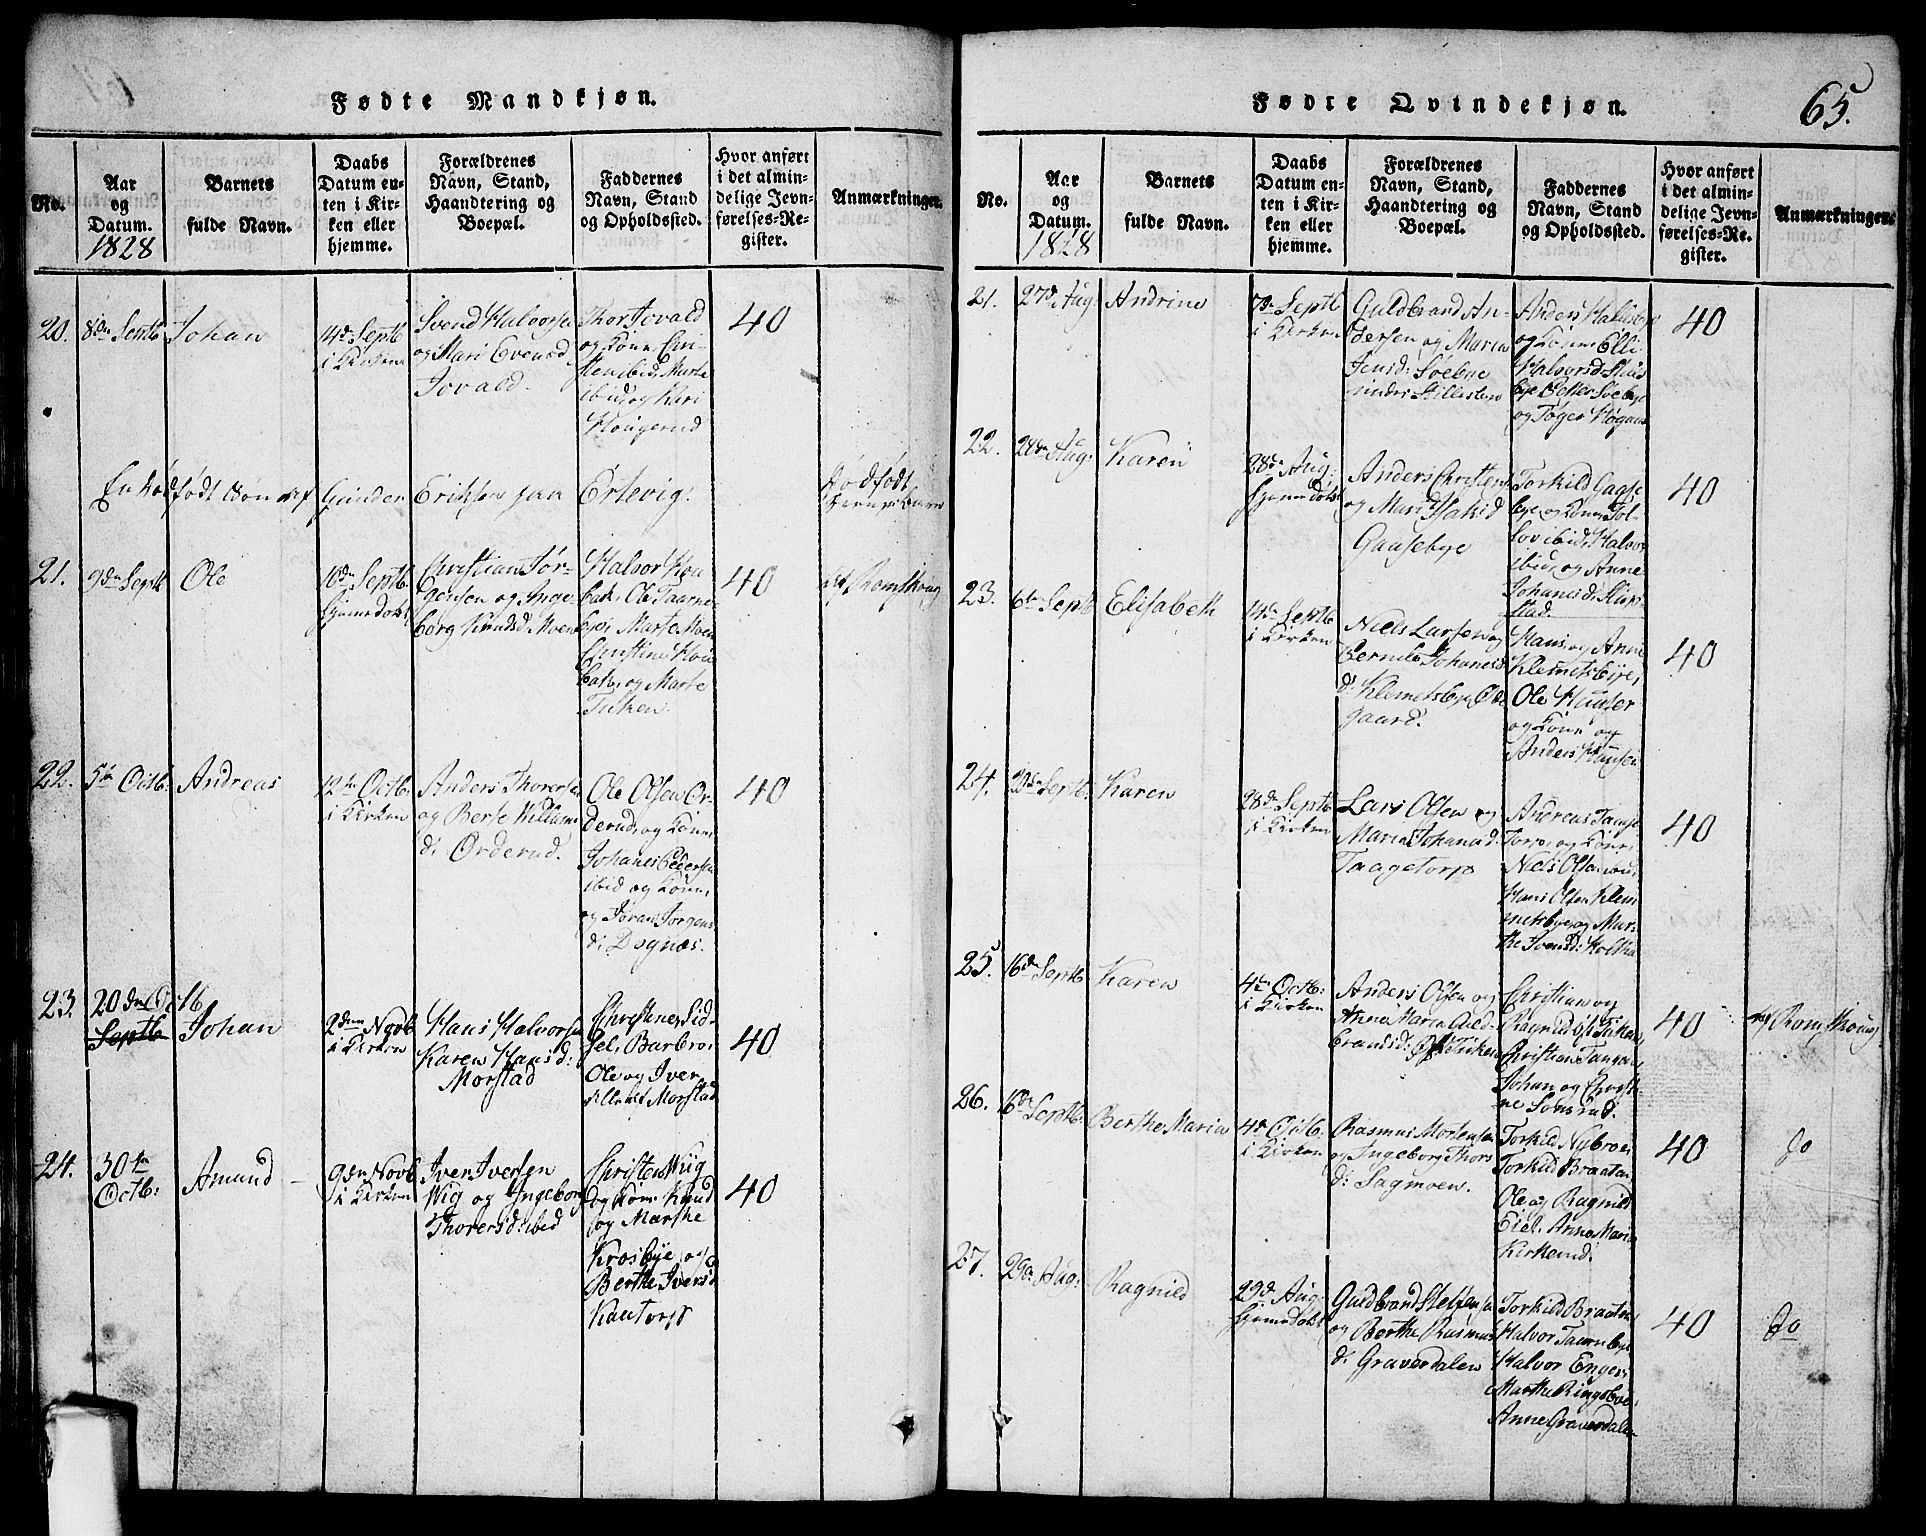 Fødte Mandkjøn.
No.
Aar og Datum. 1828
Barnets fulde Navn.
Daabs Datum enten i Kirken eller hjemme.
Forældrenes Navn, Stand, Haandtering og Boepæl.
Faddernes Navn, Stand og Opholdssted.
Hvor anført i det almindelige Jevnførelses-Register.
Anmærkninger.
20. 8de Septb Johan
14de Septb
i Kirken
Svend Halvorsen
og Mari Evensd
Tovald
og Kone
ibid, og Kari
Hougerud
40
En død født Søn af Gunder Eriksen paa Ertevig.
Dødfødt
21. 9de Septb Ole
10de Septb.
hjemmedøbt
Christian Jør-
gensen og Inge-
borg Knudsd Moen
Halvor Hou
bak, Ole Taarne-
bye, Marte Moen
Christine Hou
bak, og Marte
Tuken.
40
af Romskoug
22. 5te Octb. Andreas
12te Octb.
i Kirken
Anders Thorersen
og Berte Willums
d: Orderud.
Ole Olsen Or-
derud, og Kone,
Johanes Pedersen
ibid og Kone,
og Joran Jorgens
d: Dognæs.
40
23. 20de Octb
Septb Johan
2den Novb
i Kirken
Hans Halvorsen
Karen Hansd:
Morstad
sel, Barbro,
Ole og Iver
Morstad
40
24. 30te
Octb: Amund
9de Novb
i Kirken
Iver Iversen
Wig og Ingeborg
Thorersd: ibid
Christen Wiig
og Kone Knud
og Marthe
Krosbye, og
Berthe Iversd
Kaatorp
40
65.
Fødte Qvindekjøn.
No.
Aar og Datum. 1828
Barnets fulde Navn.
Daabs Datum enten i Kirken eller hjemme.
Forældrenes Navn, Stand, Haandtering og Boepæl.
Faddernes Navn, Stand og Opholdssted.
Hvor anført i det almindelige Jevnførelses-Register.
Anmærkninger.
21. 27de Aug: Andrine
7de Septb
i Kirken
Guldbrand An-
dersen og Maren
Jensd: Søebye
og Kone Elli
Halvorsd
40
22. 28de Aug: Karen
28de Aug:
hjemmedøbt
Anders Christens
og Mari Isaksd
Gaasebye
Torkild Gaase
bye, og Kone
ibid, Halvor
ibid, og Anne
Johanesd:
40
23. 6te Septb Elisabeth
14de Septb
i Kirken
Niels Larsen og
Johanes
d: Klemetsbye Øde
gaard.
Hans, og Anne
Klemetsbye,
Ole
og Kone og
Anders
40
24. Septb. Karen
28de Septb
i Kirken
Lars Olsen og
Maria Johanesd:
Taagetorp
Andreas Taage
torp, og Kone,
Niels Olsen
Hans Olsen Klem
metsbye, og Mar-
the
40
25. 16de Septb: Karen
4de Octb:
i Kirken
Anders Olsen og
Anne Maria Guld-
brandsd: Tuken
Christian og
Ragnild Tuken,
Christian Tangen
Johan og Christi-
ne Sonsrud.
40
af Romskoug
26. 16de Septb: Berthe Maria
4de Octb:
i Kirken
Rasmus Mortensen
og Ingeborg Thors
d: Sagmoen.
Torkild Nybroe,
Torkild Braaten,
Ole og Ragnild
Eid, Anne Maria
Kirkerud.
40
do
27. 29de Aug: Ragnild
29de Aug:
hjemmedøbt
Guldbrand Steffens
og Berthe Rasmus
d: Graverdalen
Torkild Braaten
Halvor Taarnebye
Halvor Enger,
Marthe Ringsbye,
Anne Graverdalen
40
do